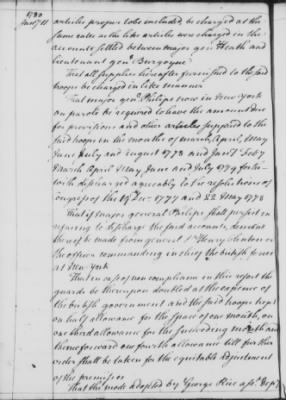 1780
Jany 11
articles proper to be included, be charged at the
same rates as the like articles were charged in the
accounts settled between major genl Heath and
lieutenant genl Burgoyne
That all supplies hereafter furnished to the said
troops be charged in like manner
That major genl Philips now in New york
on parole be required to have the amount due
for provisions and other articles supplied to the
said troops in the months of march, April, May
June July and august 1778 and Jany Feby
March April May, June and July 1779 forth-
with discharged agreeably to the resolutions of
Congress of the 19 Decr 1777 and 22 May 1778
That if major general Philips shall persist in
refusing to discharge the said accounts, demand
thereof be made from general Sr Henry Clinton or
the officer commanding in chief the british forces
at New York
That in case of non compliance in this respect the
guards be thereupon doubled at the expence of
the british government and the said troops kept
on half allowance for the space of one month, on
one third allowance for the succeeding month and
thenceforward one fourth allowance till further
order shall be taken for the equitable adjustment
of the premises
That the mode adopted by George Rice asst Depy